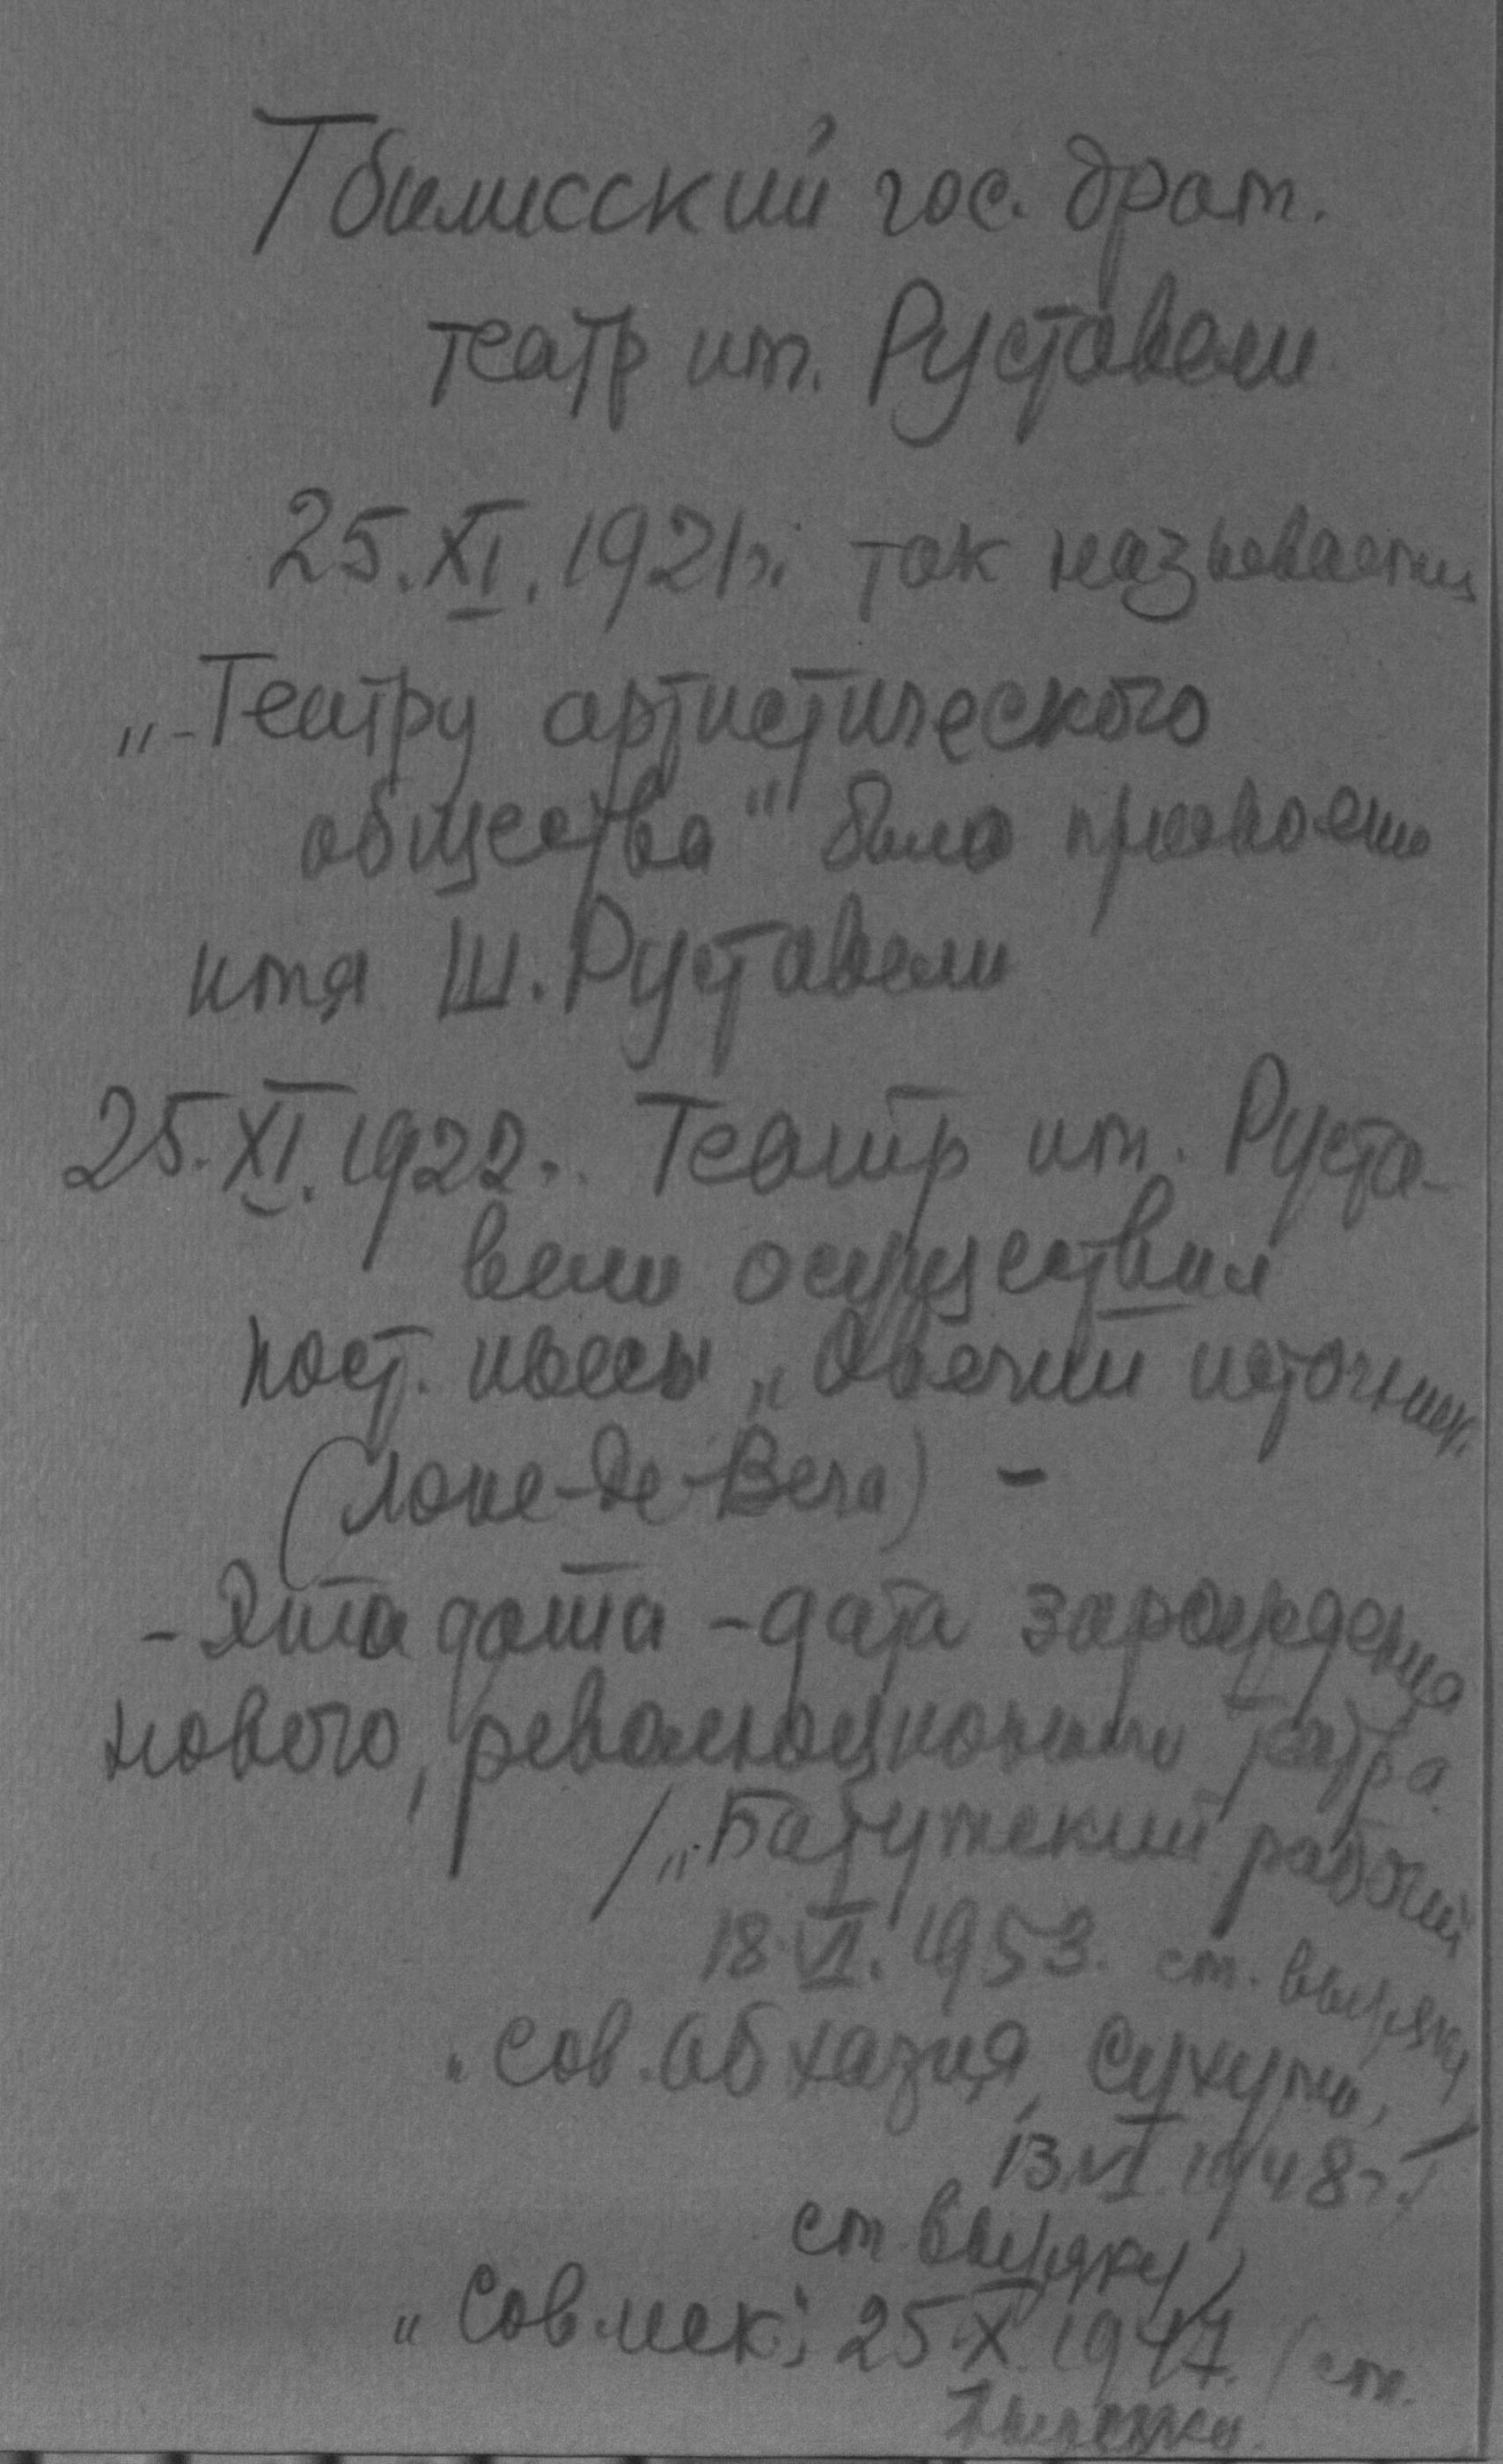 Тбилисский гос. драм.
театр им. Руставели
25.XI.1921г. так называемы
„Театру артистического
общества" было присвоено
имя Ш. Руставели
25.XI.1922г. Театр им. Руста-
вели осуществил
пост. пьесы „Овечий источник
(Лопе-де-Вега) -
- Эта дата - дата зарождения
нового, революционного театра.
/„Батумский рабочий
18.VI.1953. см. вырезку
„Сов. Абхазия, Сухуми,
13.VI.1948г.
см вырезку)
„Сов. иск", 25.X.1947. (см.
вырезку.